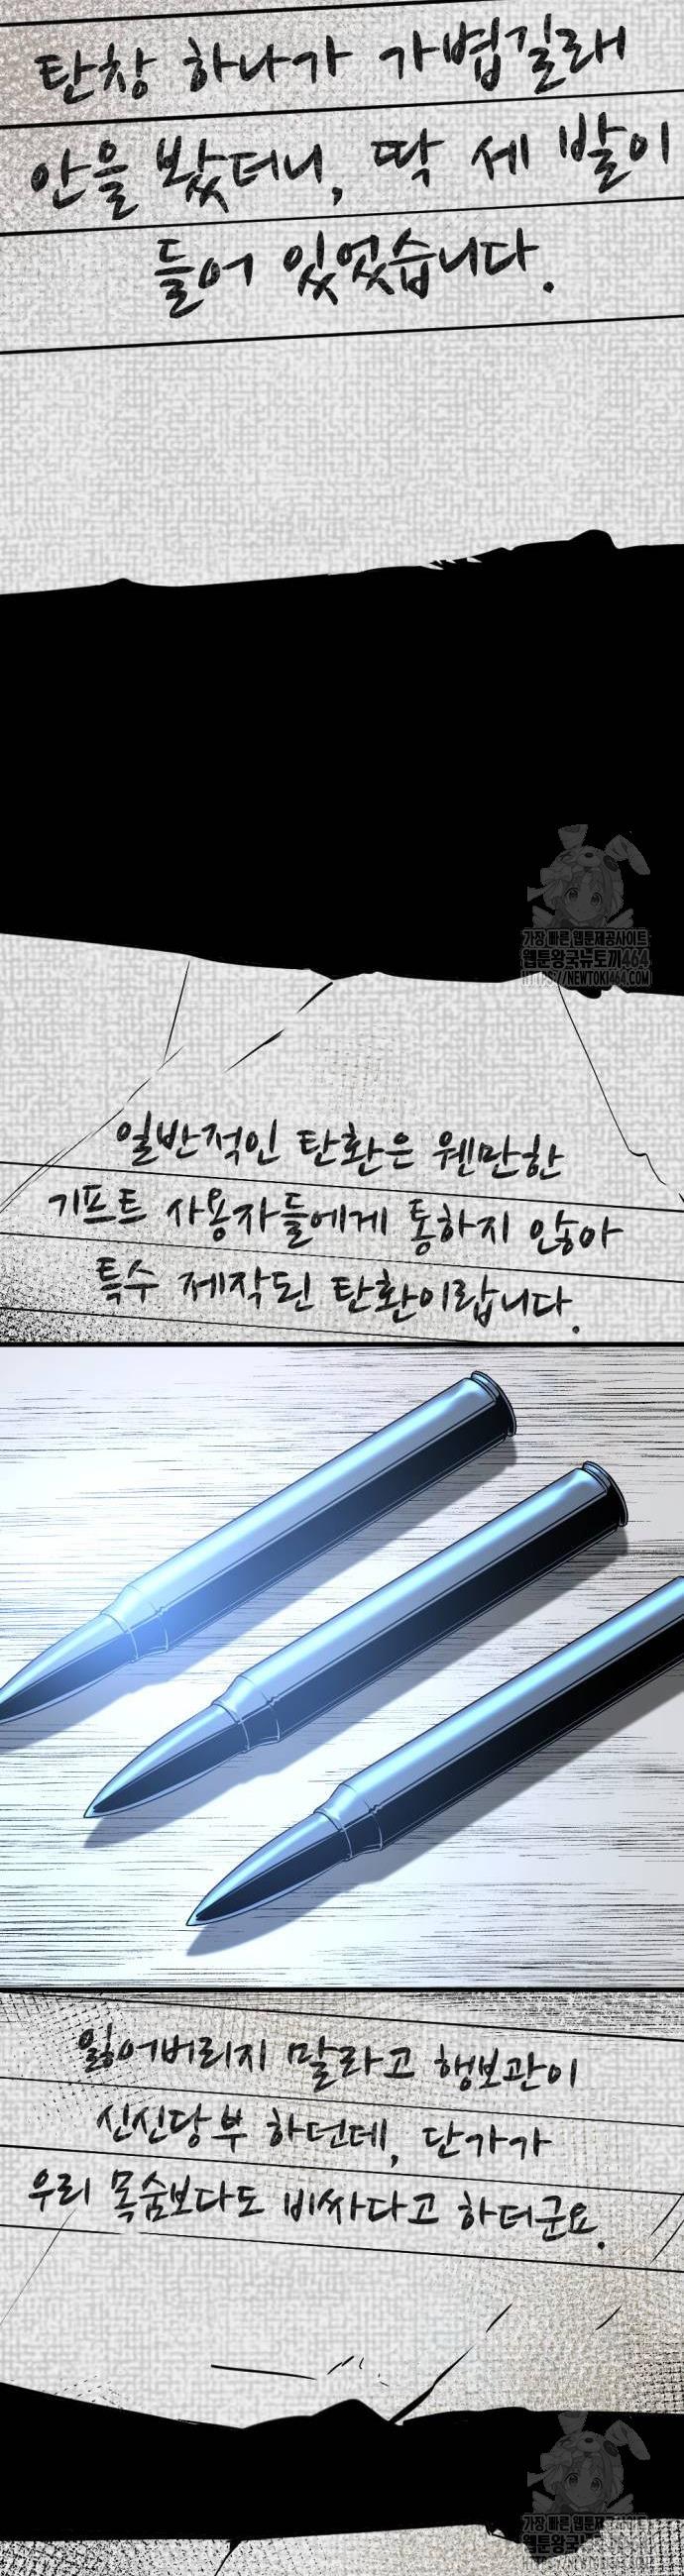 탄창 하나가 가볍길래
안을 봤더니, 딱 세 발이
들어 있었습니다.
가장 빠른 웹툰제공사이트
웹툰왕국뉴토끼464
HTTPS://NEWTOKI464.COM
일반적인 탄환은 웬만한
기프트 사용자들에게 통하지 않아
특수 제작된 탄환이랍니다.
잃어버리지 말라고 행보관이
신신당부 하던데, 단가가
우리 목숨보다도 비싸다고 하더군요.
가장 빠른 웹툰제공사이트
웹툰왕국뉴토끼464